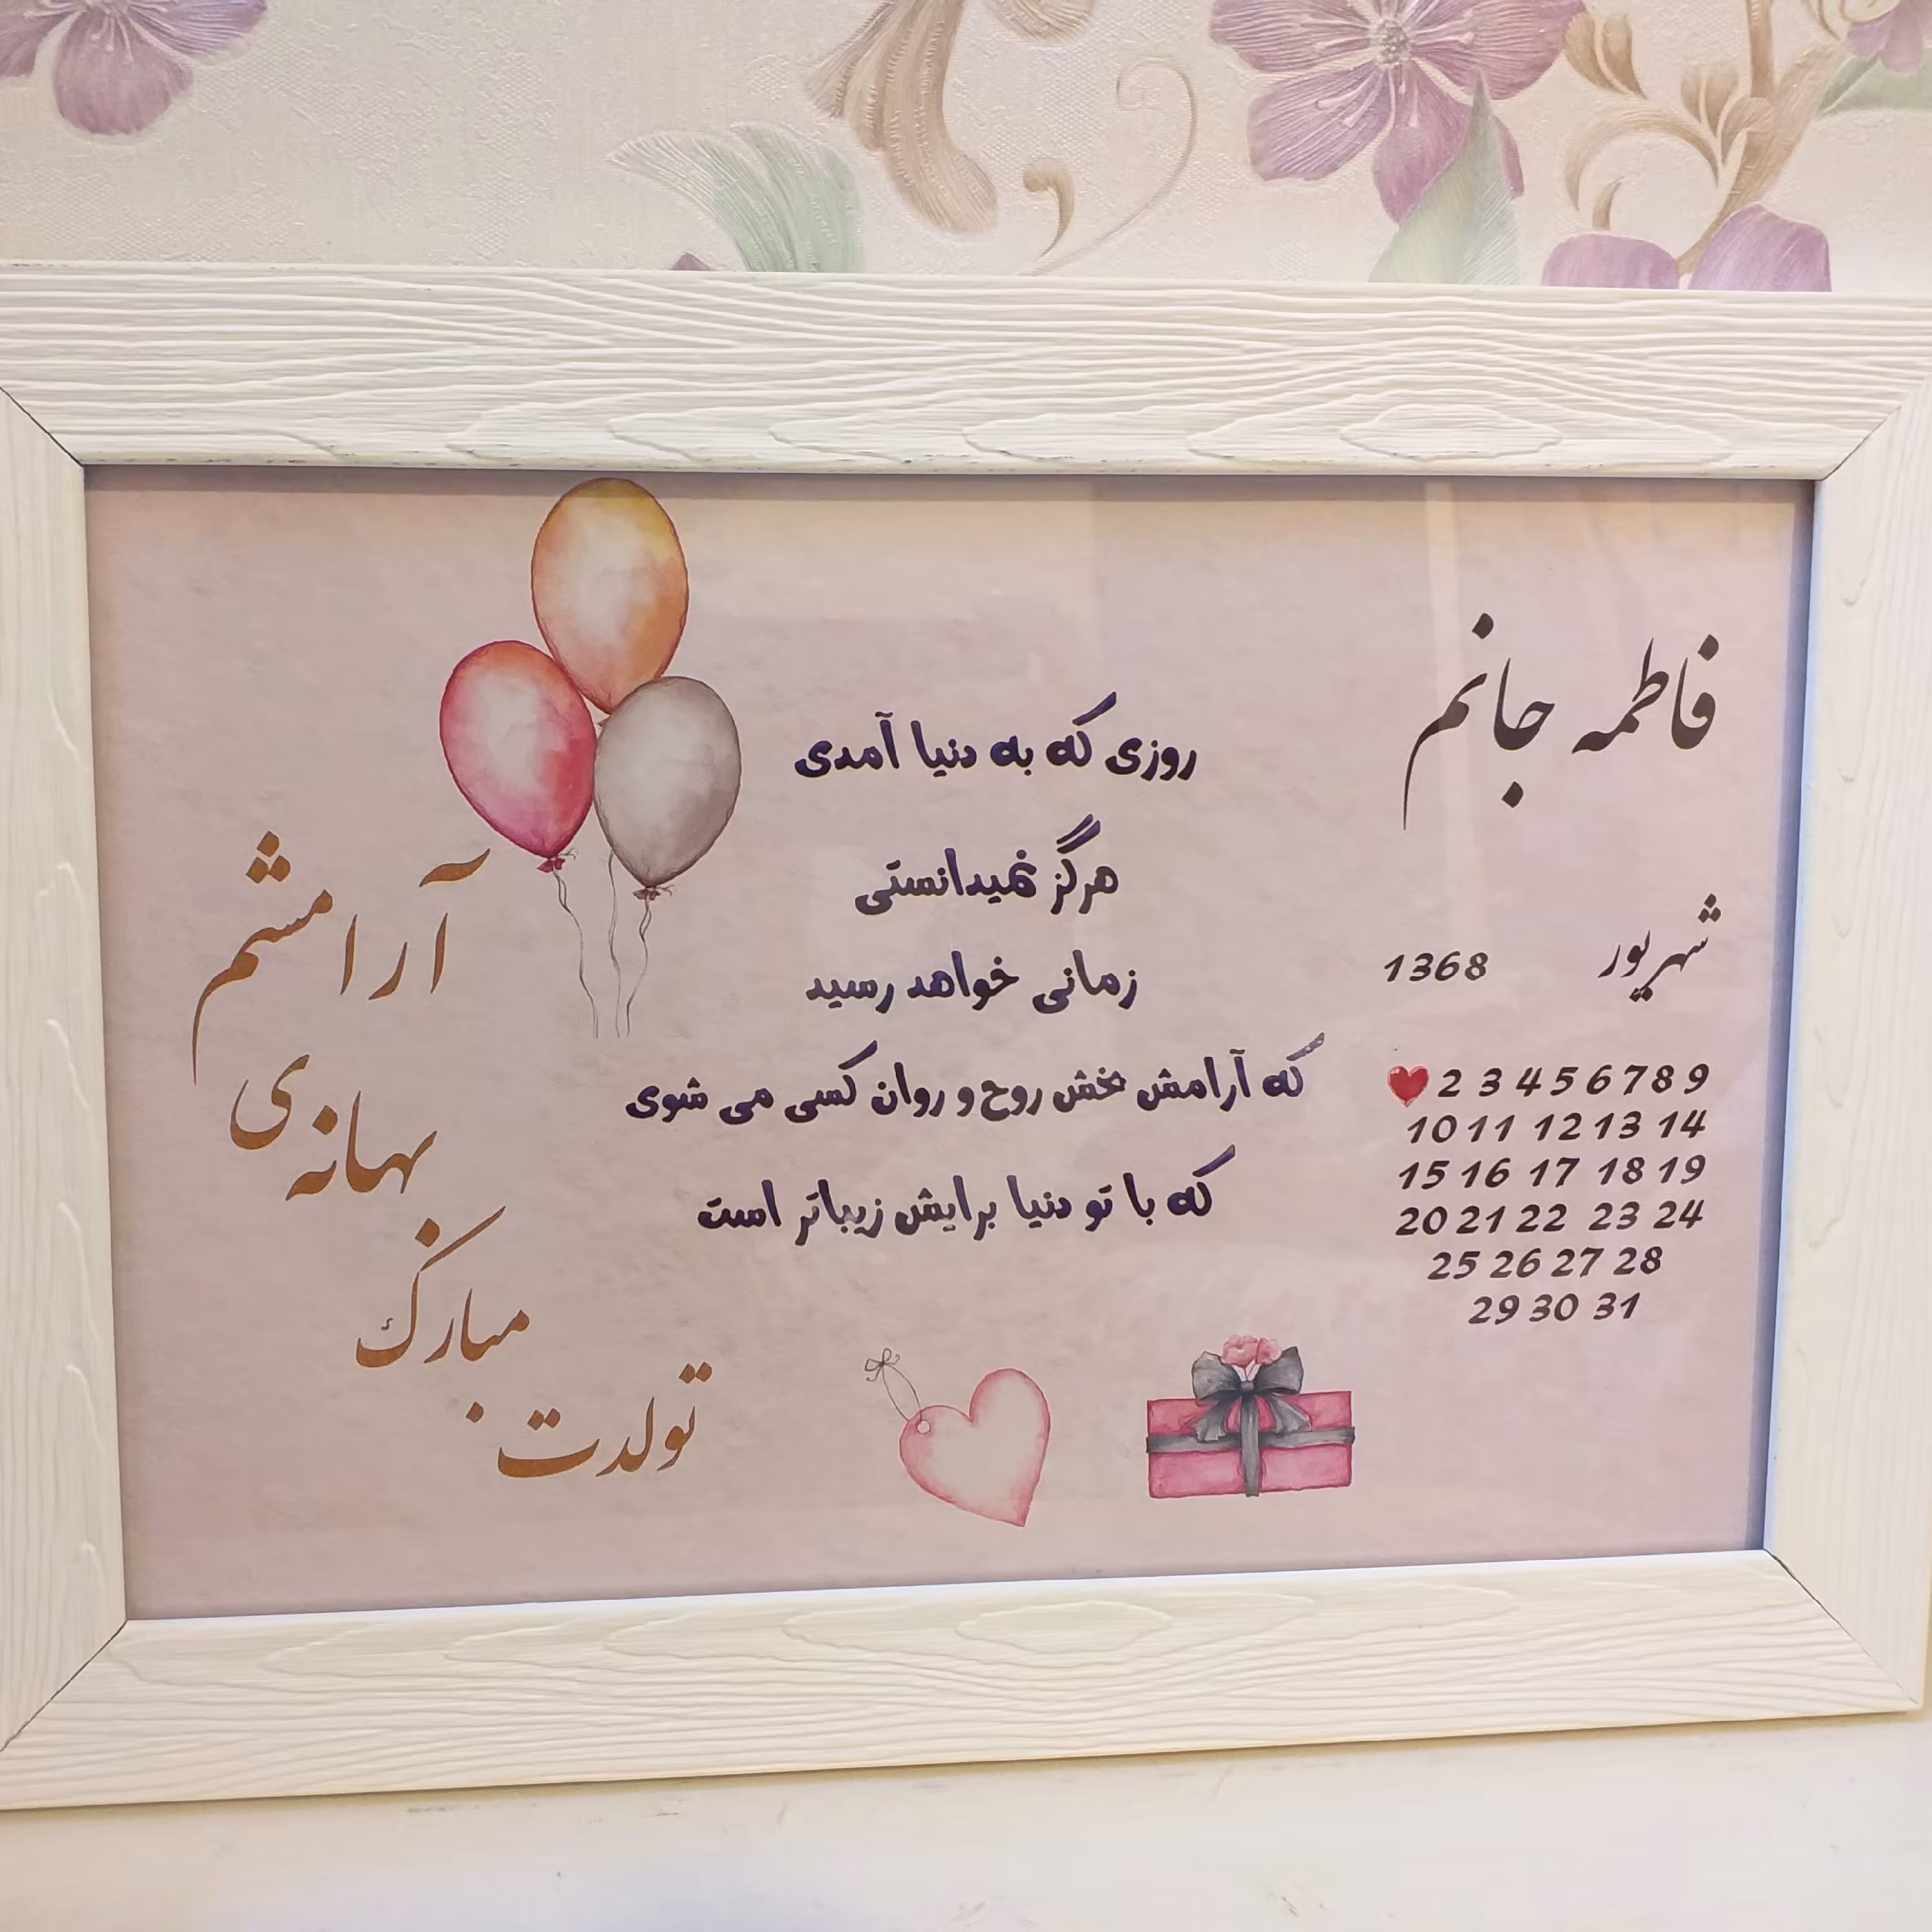 فاطمه جانم
شهریور 1368
2 3 4 5 6 7 8 9
10 11 12 13 14
15 16 17 18 19
20 21 22 23 24
25 26 27 28
29 30 31
روزی که به دنیا آمدی
هرگز نمیدانستی
زمانی خواهد رسید
که آرامش بخش روح و روان کسی می شوی
که با تو دنیا برایش زیباتر است
آرامشم
بهانه ی
مبارک
تولدت